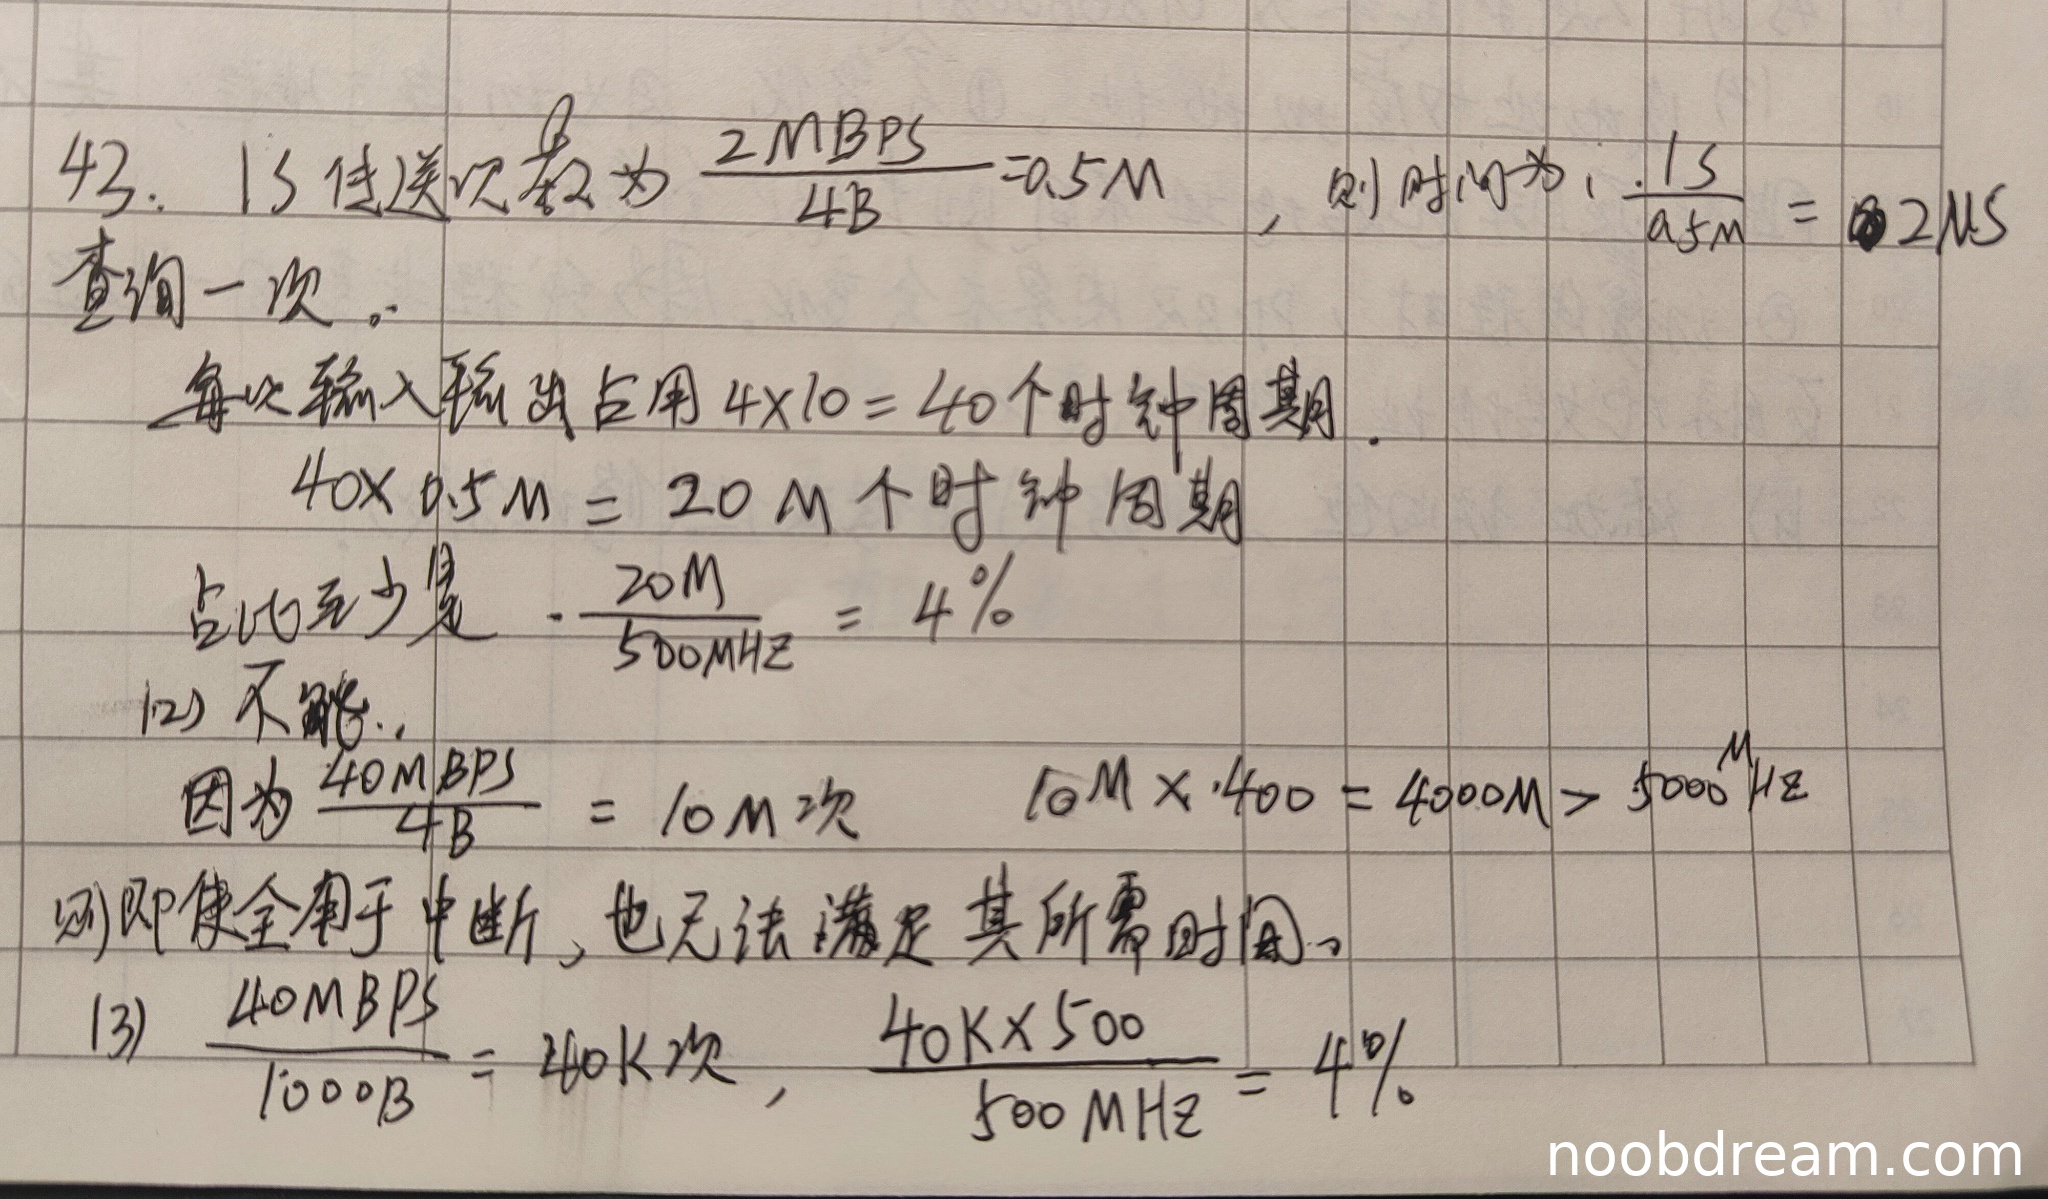 43. 1S传送次数为 2MBPS/4B =0.5M , 则时间为: 1S/0.5M = 2μS
查询一次。
每次输入输出占用 4×10=40个时钟周期.
40×0.5M = 20M个时钟周期
占比至少是 20M/500MHZ = 4%
(2) 不能.
因为 40MBPS/4B = 10M次 10M×400=4000M> 5000MHZ
则即使全用于中断,也无法满足其所需时间。
(3) 40MBPS/1000B = 40K次, 40K×500/500MHZ = 4%
noobdream.com